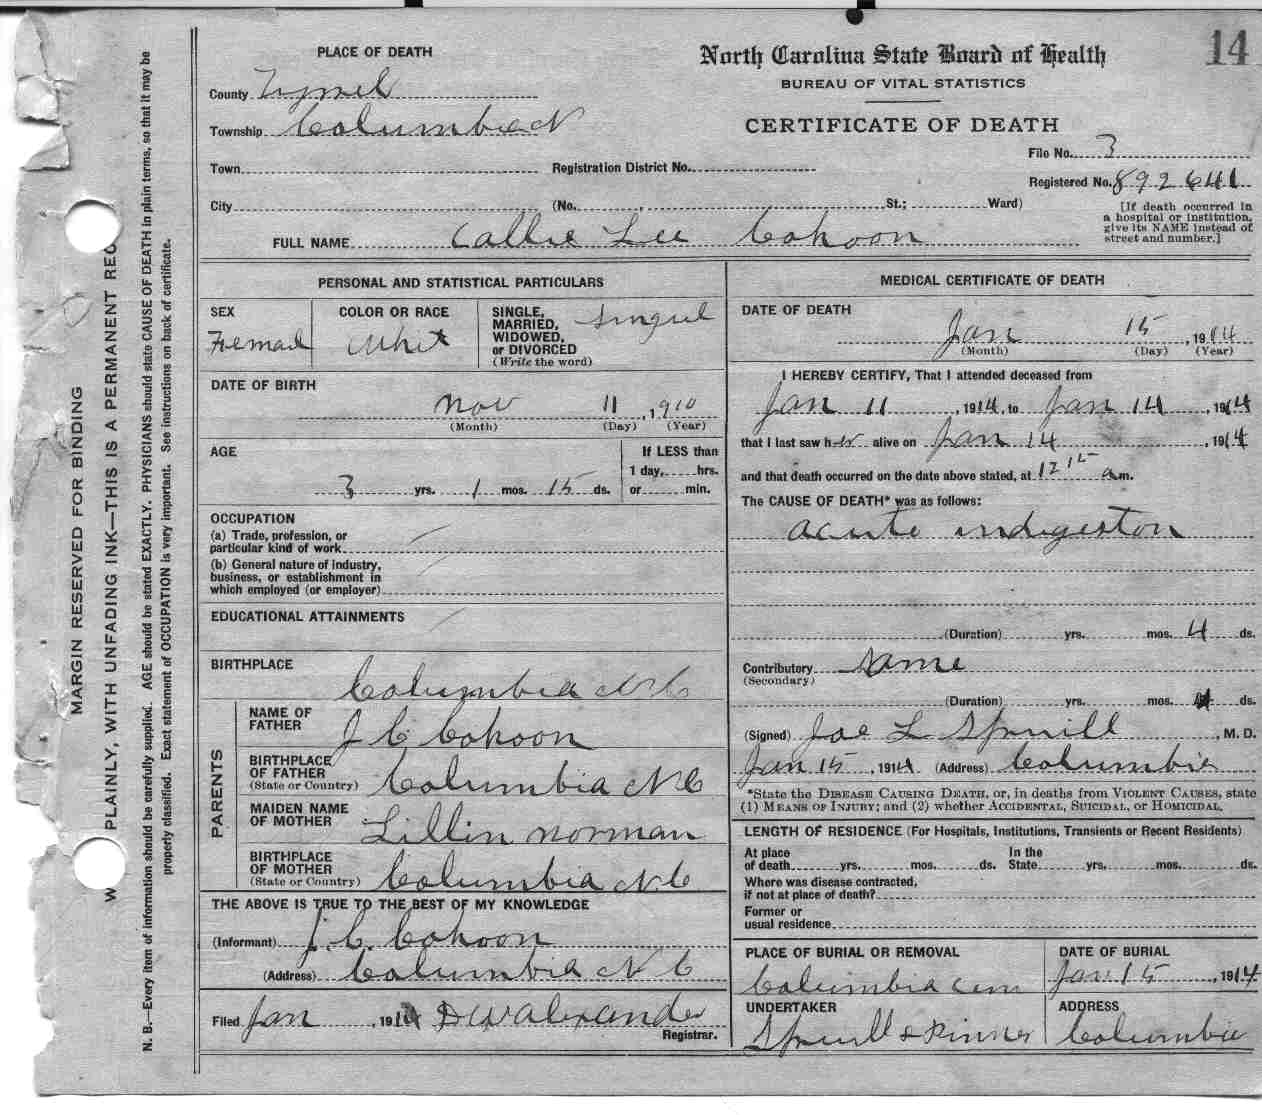 14
PLACE OF DEATH
North Carolina State Board of Health
BUREAU OF VITAL STATISTICS
CERTIFICATE OF DEATH
County
Township Columbia N
File No. 3
Town Registration District No.
Registered No. 892
City (No. , St.; Ward)
[If death occurred in
a hospital or institution,
give its NAME instead of
street and number.]
FULL NAME Callie Lee Cohoon
PERSONAL AND STATISTICAL PARTICULARS
SEX
Femail
COLOR OR RACE
White
SINGLE,
MARRIED,
WIDOWED,
or DIVORCED
(Write the word)
Singel
DATE OF BIRTH
Nov 11, 1910
(Month) (Day) (Year)
AGE
3 yrs. 1 mos. 15 ds.
If LESS than
1 day, hrs.
or min.
OCCUPATION
(a) Trade, profession, or
particular kind of work
(b) General nature of industry,
business, or establishment in
which employed (or employer)
EDUCATIONAL ATTAINMENTS
BIRTHPLACE
Columbia N C
PARENTS
NAME OF
FATHER
J C Cohoon
BIRTHPLACE
OF FATHER
(State or Country)
Columbia N C
MAIDEN NAME
OF MOTHER
Lillin Norman
BIRTHPLACE
OF MOTHER
(State or Country)
Columbia N C
THE ABOVE IS TRUE TO THE BEST OF MY KNOWLEDGE
(Informant) J. C. Cohoon
(Address) Columbia N C
Filed Jan , 1914 D W Alexander
Registrar.
MEDICAL CERTIFICATE OF DEATH
DATE OF DEATH
Jan 15, 1914
(Month) (Day) (Year)
I HEREBY CERTIFY, That I attended deceased from
Jan 11, 1914, to Jan 14, 1914
that I last saw her alive on Jan 14, 1914
and that death occurred on the date above stated, at 12 15 a m.
The CAUSE OF DEATH* was as follows:
acute indigeston
(Duration) yrs. mos. 4 ds.
Contributory Same
(Secondary)
(Duration) yrs. mos. 4 ds.
(Signed) Joe L Spruill, M. D.
Jan 15, 1914 (Address) Columbia
*State the DISEASE CAUSING DEATH, or, in deaths from VIOLENT CAUSES, state
(1) MEANS OF INJURY; and (2) whether ACCIDENTAL, SUICIDAL, or HOMICIDAL.
LENGTH OF RESIDENCE (For Hospitals, Institutions, Transients or Recent Residents)
At place In the
of death yrs. mos. ds. State yrs. mos. ds.
Where was disease contracted,
if not at place of death?
Former or
usual residence
PLACE OF BURIAL OR REMOVAL
Columbia cem
DATE OF BURIAL
Jan 15, 1914
UNDERTAKER
Spruill & Pinner
ADDRESS
Columbia
MARGIN RESERVED FOR BINDING
PLAINLY, WITH UNFADING INK—THIS IS A PERMANENT REC
N. B.—Every item of information should be carefully supplied. AGE should be stated EXACTLY. PHYSICIANS should state CAUSE OF DEATH in plain terms, so that it may be
properly classified. Exact statement of OCCUPATION is very important. See instructions on back of certificate.